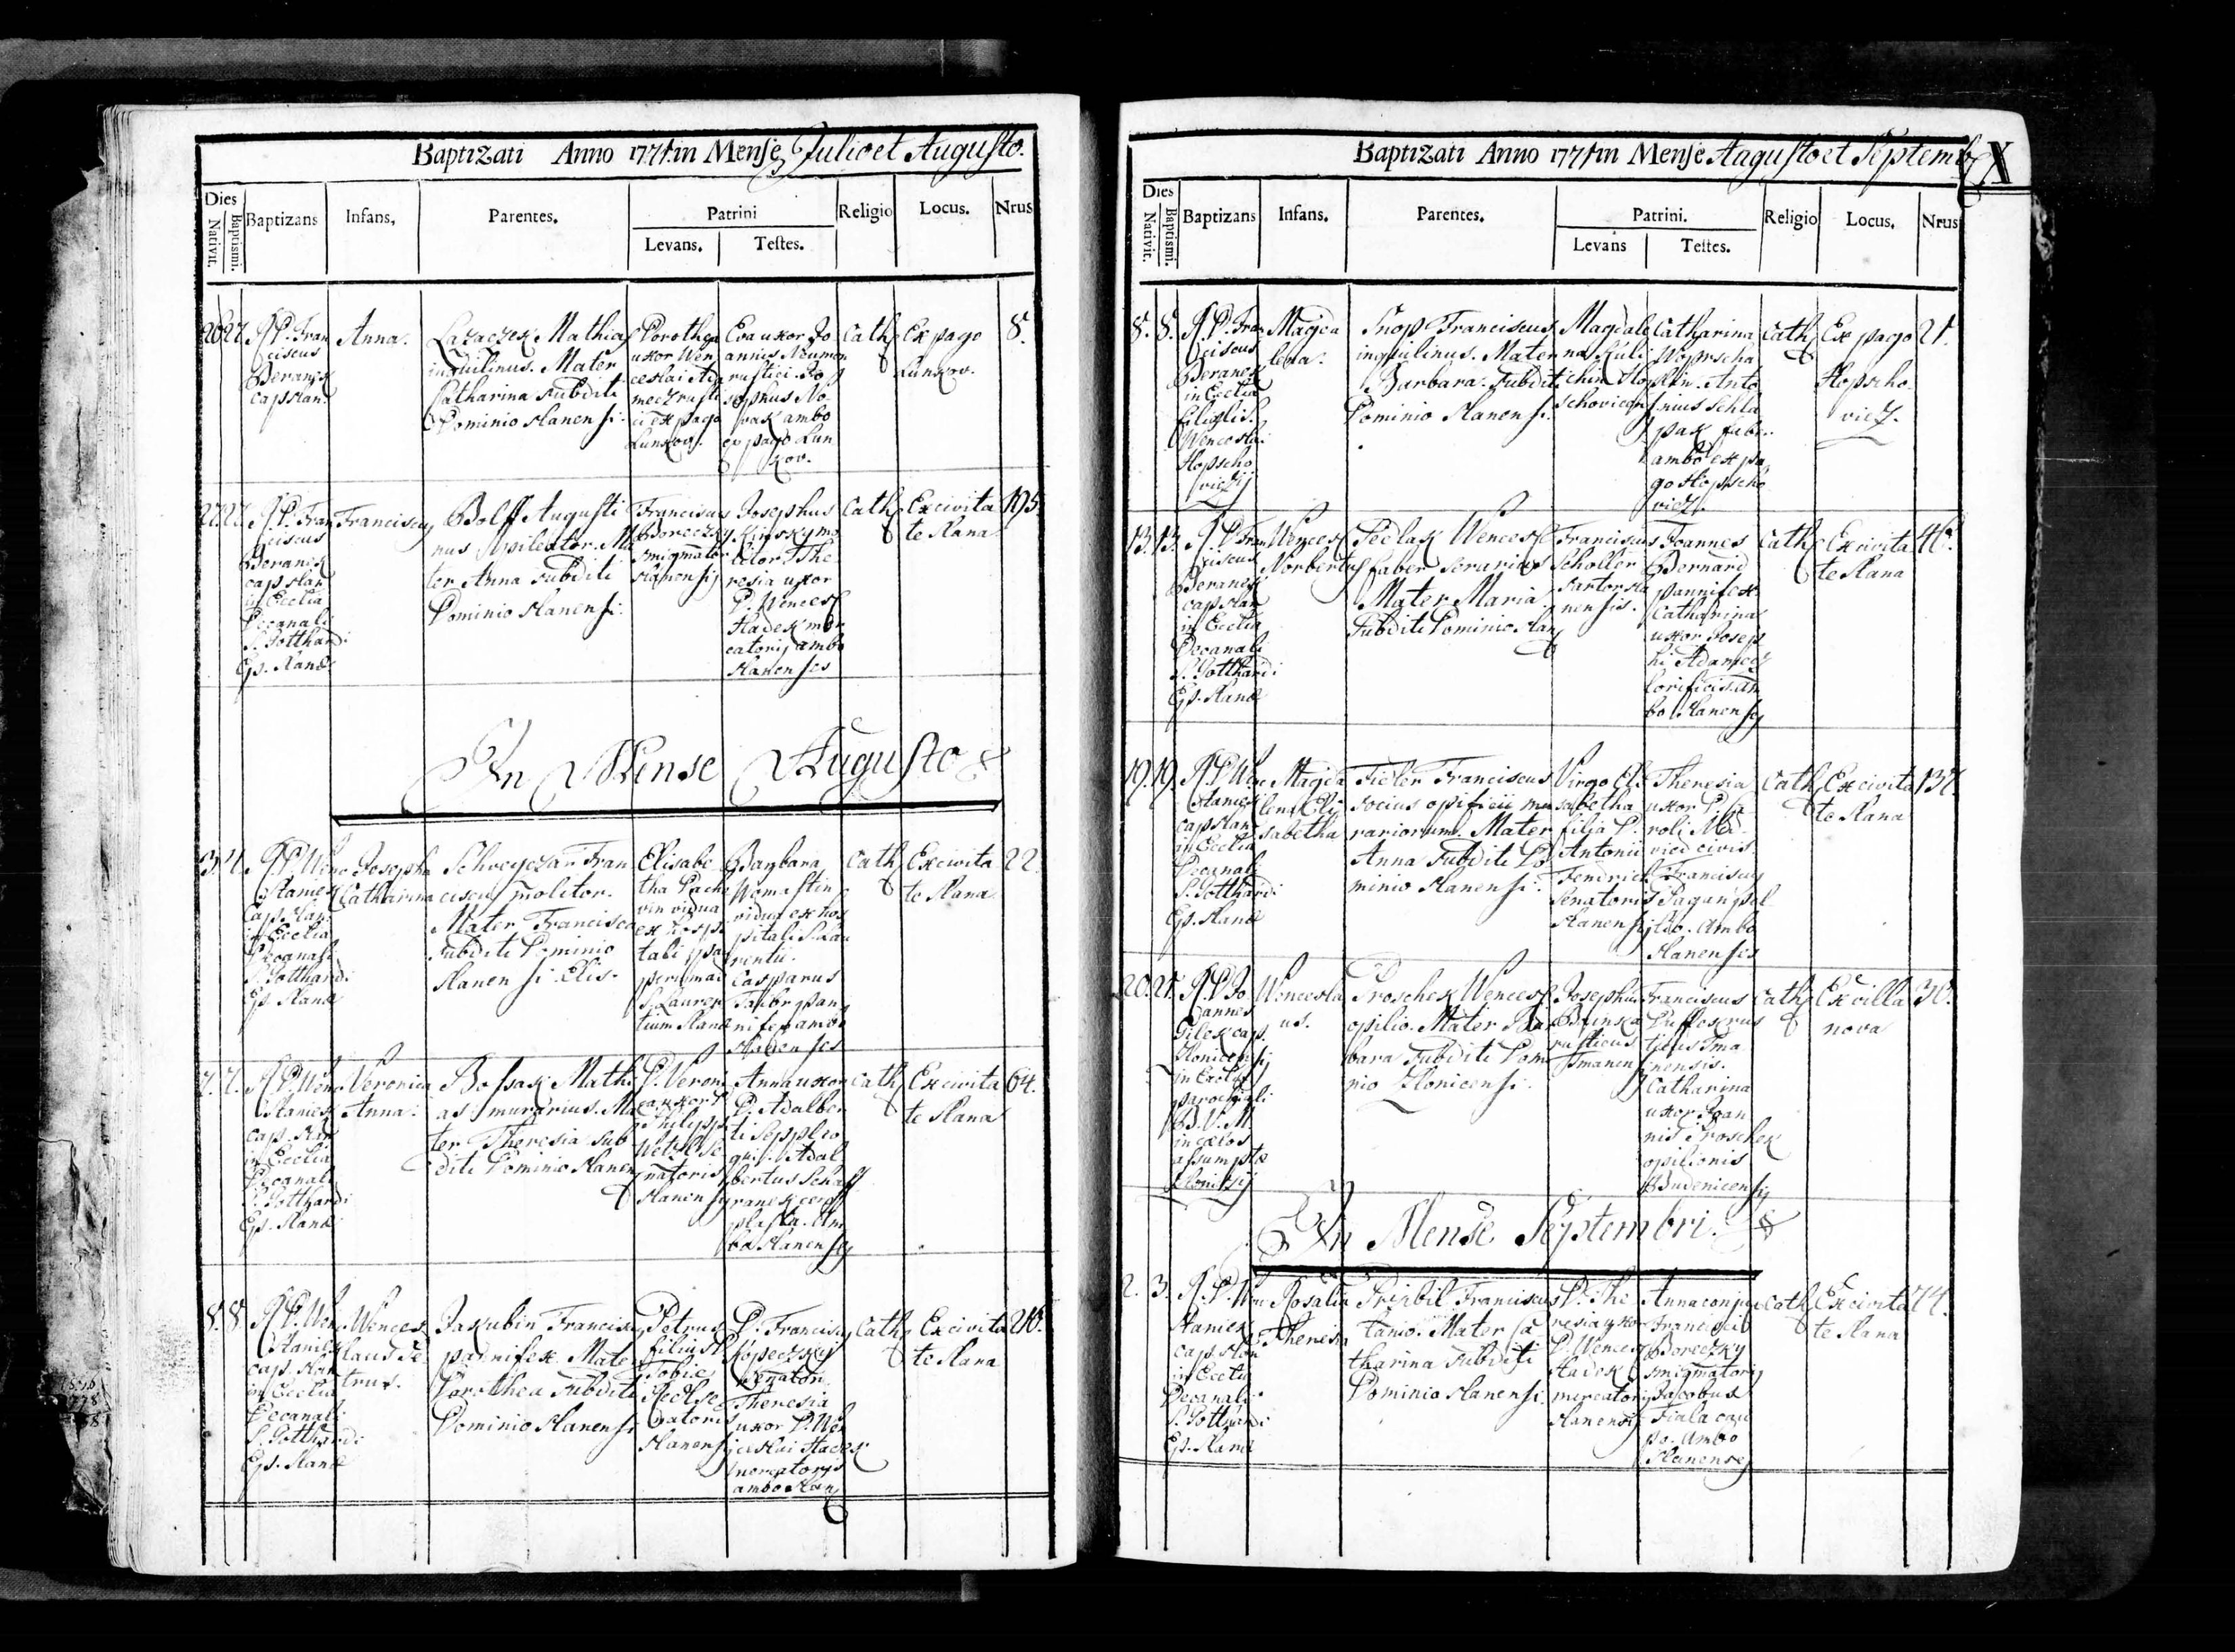 Baptizati Anno 1771 in Mense Julio et Augusto.
Dies
Nativit.
Baptismi.
Baptizans
Infans,
Parentes.
Patrini
Levans.
Testes.
Religio
Locus.
Nrus
26
27.
A P. Fran
ciscus
Beranek
Cap. Slan.
Anna.
Lazaczek Mathias
inquilinus. Mater
Catharina subditi
Dominio Slanensi.
Dorothea
uxor Wen
ceslai Ada
mecz rusti
ci ex pago
Lunkov.
Eva uxor Jo
annis Neuman
rustici. Jo
sephus No-
vak ambo
ex pago Lun
kov.
Cath
Ex pago
Lunkov.
8.
27.
27.
A P. Fran
ciscus
Beranek
cap. Slan
in Ecclia
Decanali
S. Gotthardi
Ep. Slanæ
Franciscus
Bolff Augusti
nus pileator. Ma
ter Anna subditi
Dominio Slanensi.
Franciscus
Boreczky
smigmator
Slanensis
Josephus
Kinsky mo
litor. The
resia uxor
P. Wences
Hadek mer
catoris ambo
Slanenses
Cath
Ex civita
te Slana
195.
In Mense Augusto
3.
4.
A P. Wenc
Staniek
Cap. Slan.
in Ecclia
Decanali
S. Gotthardi
Ep. Slanæ
Josepha
Catharina
Fran
ciscus molitor.
Mater Francisca
subditi Dominio
Slanensi.
Elisabe
tha Pache
vin vidua
ex hospi
tali
S. Lauren
tium Slanæ
Barbara
vidua ex hos
pitali S. Lau
rentii.
Casparus
Taubr pan
nifex ambo
Slanenses
Cath
Ex civita
te Slana
22.
7.
7.
A P. Wenc
Staniek
cap. Slan
in Ecclia
Decanali
S. Gotthardi
Ep. Slanæ
Veronica
Anna.
Bossak Mathi
as murarius. Ma
ter Theresia sub
diti Dominio Slanen
P. Veroni
ca uxor P.
Philippi
Wetzl se
natoris
Slanensis
Anna uxor
P. Adalber
ti Seppl
Adal
bertus
Am
bo Slanenses
Cath
Ex civita
te Slana
64.
8.
8.
A P. Wen
Staniek
cap. Slan
in Ecclia
Decanali
S. Gotthardi
Ep. Slanæ
Wences
laus Pe
trus.
Jakubin Franciscus
pannifex. Mater
Dorothea subditi
Dominio Slanensi
Petrus
filius P.
Tobiæ
se
natoris
Slanensis
P. Franciscus
Kopeczky
Senator.
Theresia
uxor P. Wen
ceslai Hadek
mercatoris
ambo Slan
Cath
Ex civita
te Slana
216.
Baptizati Anno 1771 in Mense Augusto et Septemb
X
Dies
Nativit.
Baptismi.
Baptizans
Infans.
Parentes.
Patrini.
Levans
Testes.
Religio
Locus.
Nrus
8.
8.
A P. Fran
ciscus
Beranek
in Ecclia
filiali S.
Wenceslai
Hopscho
viczij
Magda
lena.
Snop Franciscus
inquilinus. Mater
Barbara. subditi
Dominio Slanensi.
Magdale
na Kuli
chin Hop
schovicen
Catharina
Anto
nius Schla
pak
ambo ex pa
go Hopscho
vicz.
Cath
Ex pago
Hopscho
vicz.
21.
13.
13.
A P. Fran
ciscus
Beranek
cap. Slan
in Ecclia
Decanali
S. Gotthardi
Ep. Slanæ
Wences
Norbertus
Sedlak Wences
faber serarius
Mater Maria
Subditi Dominio Slan
Franciscus
Scholler
sartor Sla
nensis.
Joannes
Bernard
pannifex
Catharina
uxor Josep
hi Adamecz
lorificis. Am
bo Slanenses
Cath
Ex civita
te Slana
46.
19.
19.
A P. Wenc
Staniek
cap. Slan
in Ecclia
Decanali
S. Gotthardi
Ep. Slanæ
Magda
lena Eli
sabetha
Fidler Franciscus
socius opificii mu
rariorum. Mater
Anna subditi Do
minio Slanensi.
Virgo Eli
sabetha
filia P.
Antonii
Fendrich
Senatoris
Slanensis
Theresia
uxor P. Ca
roli
civis.
Franciscus
Pagan pel
lio. Ambo
Slanenses
Cath
Ex civita
te Slana
137.
20.
21.
A P. Jo
annes
Cilek cap.
Zlonicensis
in Ecclia
parochiali
B. V. M.
in cælos
assumptæ
Wencesla
us.
Proschek Wences
opilio. Mater Bar
bara subditi Domi
nio Zlonicensi.
Josephus
Brinka
rusticus
Tmanensis
Franciscus
rus
ticus Tma
nensis.
Catharina
uxor Joan
nis Proschek
opilionis
Budenicensis
Cath
Ex villa
nova
30.
In Mense Septembri.
2.
3.
A P. Wen
Staniek
cap. Slan
in Ecclia
Decanali
S. Gotthardi
Ep. Slanæ
Rosalia
Theresia
Przibil Franciscus
lanio. Mater Ca
tharina subditi
Dominio Slanensi.
P. The
resia uxor
P. Wences
Hadek
mercatoris
Slanensis
Anna conjux
Francisci
Boreczky
smigmatoris
Jacobus
Fiala cau
po. Ambo
Slanenses
Cath
Ex civita
te Slana
74.